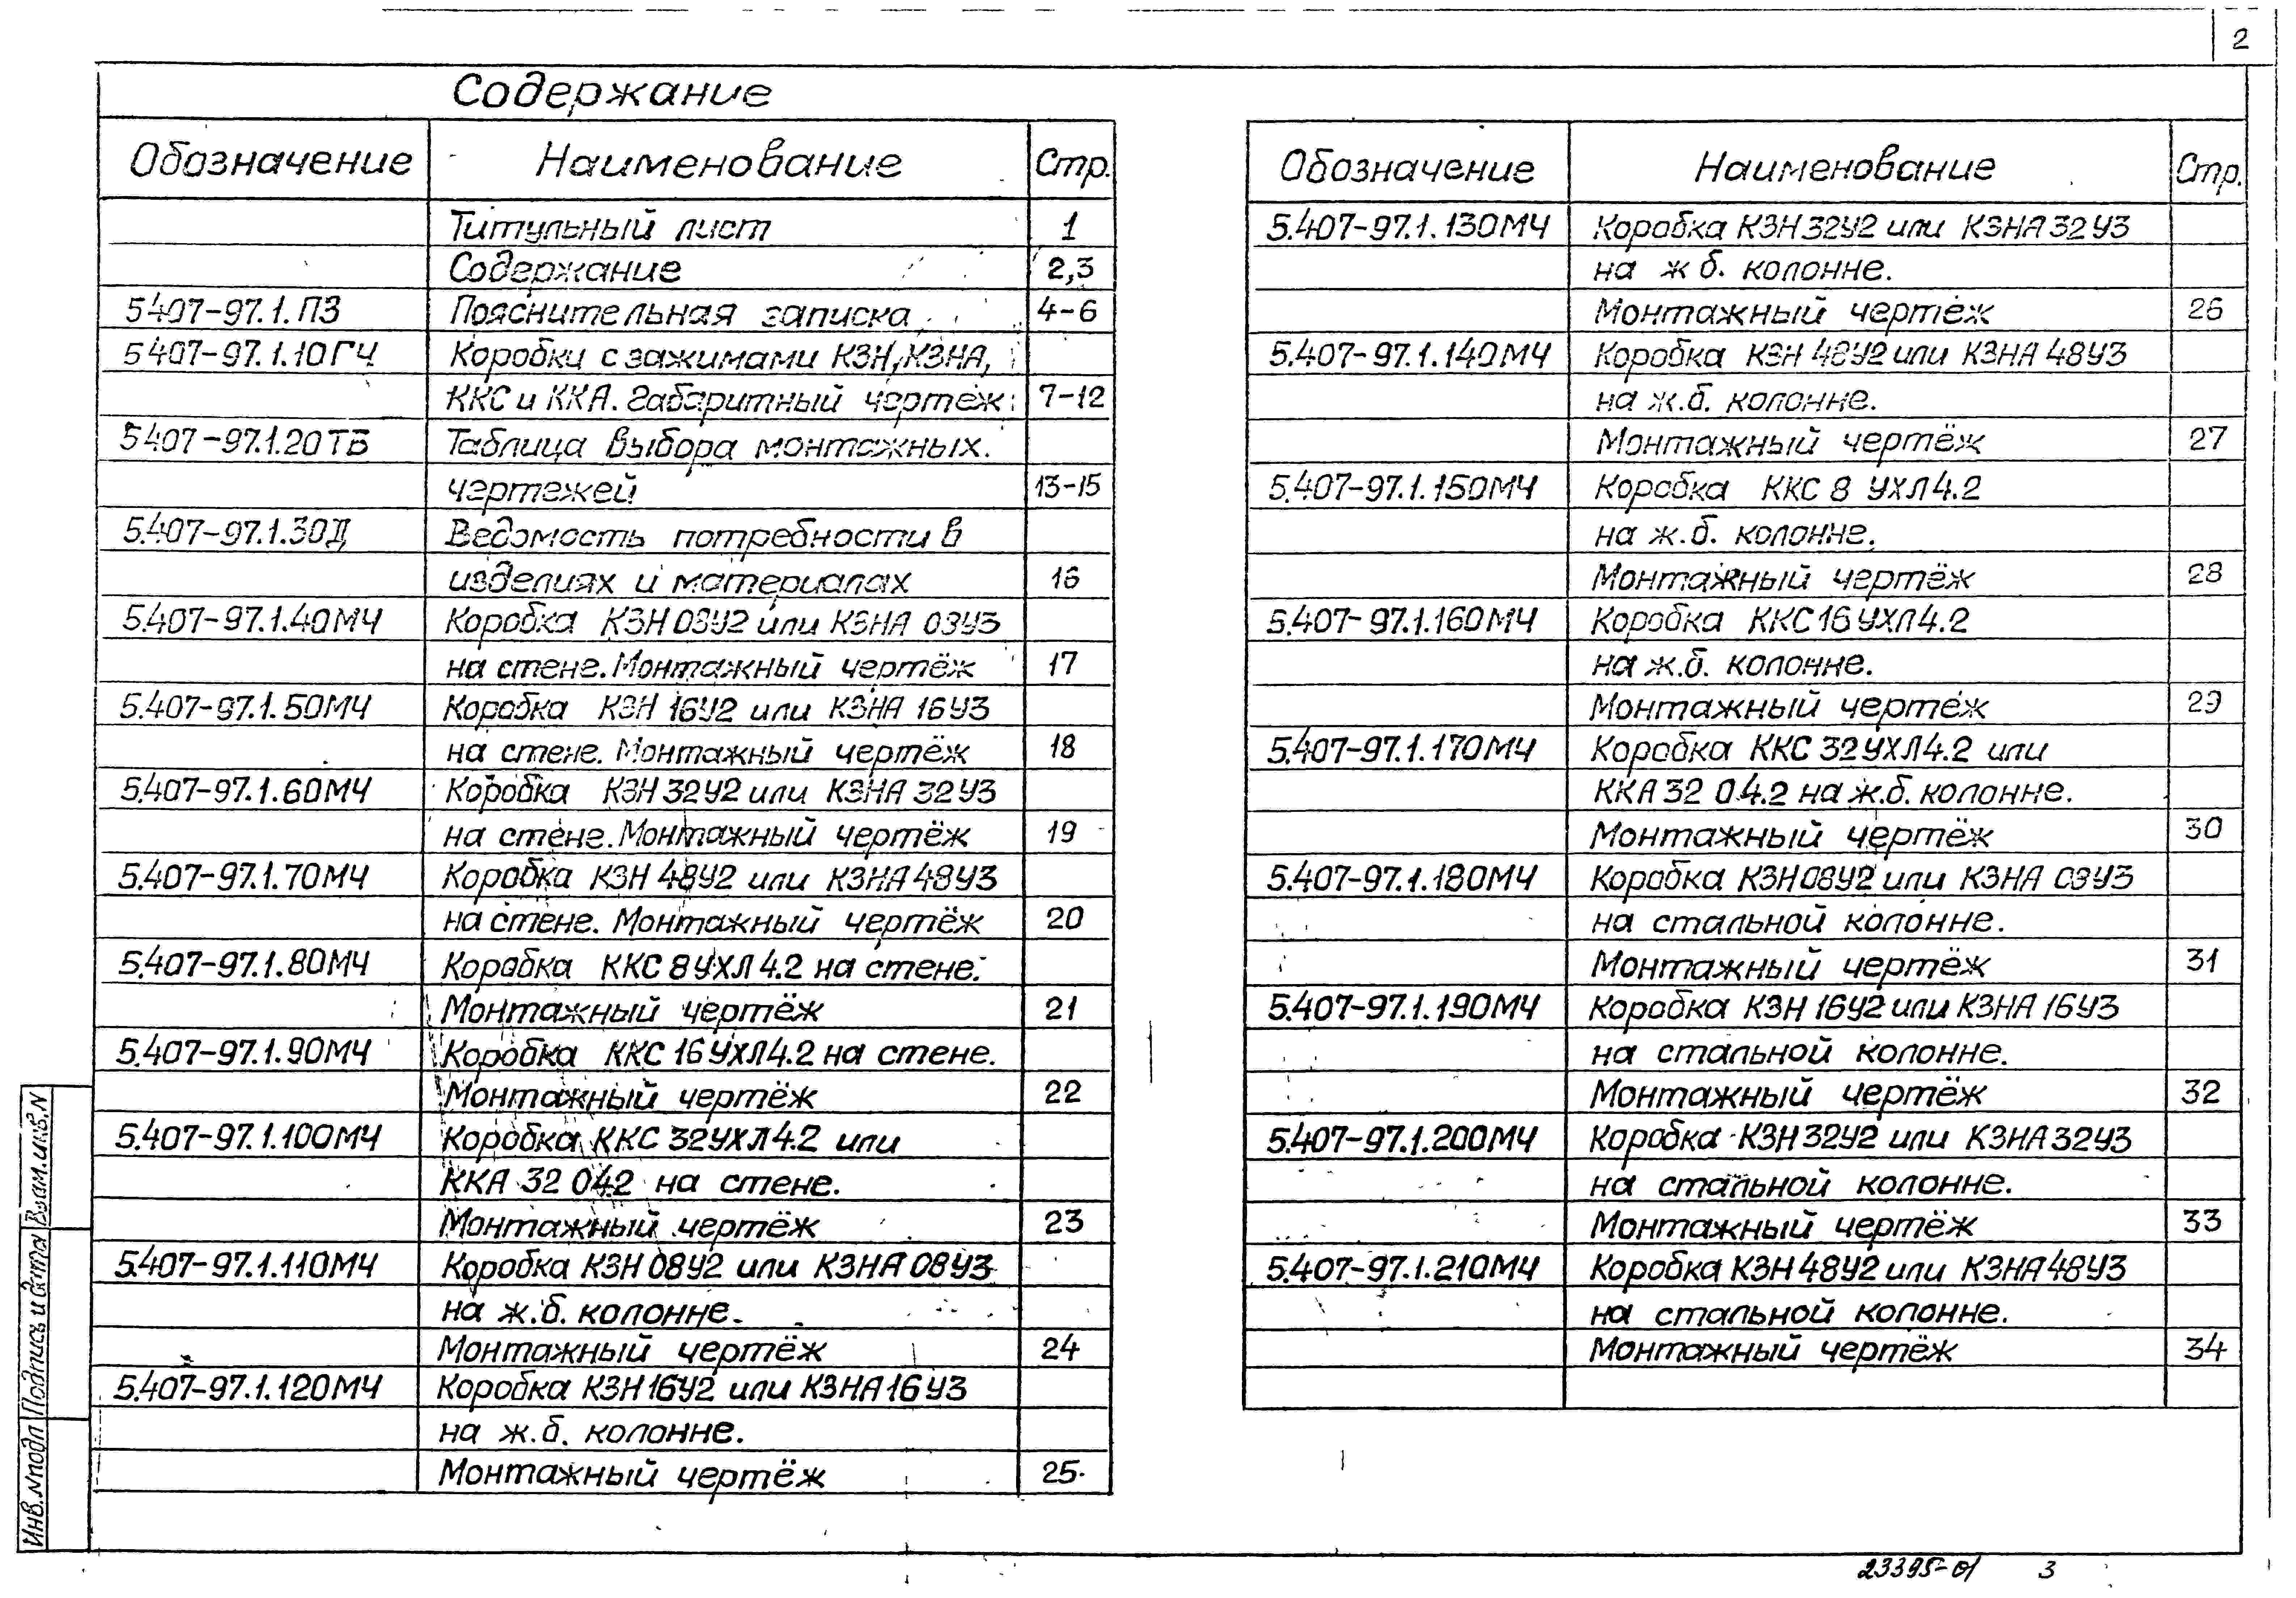 2
Содержание
Обозначение Наименование Стр.
Титульный лист 1
Содержание 2,3
5.407-97.1.ПЗ Пояснительная записка 4-6
5.407-97.1.10ГЧ Коробки с зажимами КЗН, КЗНА,
ККС и ККА. Габаритный чертёж 7-12
5.407-97.1.20ТБ Таблица выбора монтажных
чертежей 13-15
5.407-97.1.30Д Ведомость потребности в
изделиях и материалах 16
5.407-97.1.40МЧ Коробка КЗН 08У2 или КЗНА 08У3
на стене. Монтажный чертёж 17
5.407-97.1.50МЧ Коробка КЗН 16У2 или КЗНА 16У3
на стене. Монтажный чертёж 18
5.407-97.1.60МЧ Коробка КЗН 32У2 или КЗНА 32У3
на стене. Монтажный чертёж 19
5.407-97.1.70МЧ Коробка КЗН 48У2 или КЗНА 48У3
на стене. Монтажный чертёж 20
5.407-97.1.80МЧ Коробка ККС 8 УХЛ 4.2 на стене.
Монтажный чертёж 21
5.407-97.1.90МЧ Коробка ККС 16 УХЛ4.2 на стене.
Монтажный чертёж 22
5.407-97.1.100МЧ Коробка ККС 32УХЛ4.2 или
ККА 32 04.2 на стене.
Монтажный чертёж 23
5.407-97.1.110МЧ Коробка КЗН 08У2 или КЗНА 08У3
на ж.б. колонне.
Монтажный чертёж 24
5.407-97.1.120МЧ Коробка КЗН16У2 или КЗНА16У3
на ж.б. колонне.
Монтажный чертёж 25
Обозначение Наименование Стр.
5.407-97.1.130МЧ Коробка КЗН32У2 или КЗНА32У3
на ж б. колонне.
Монтажный чертёж 26
5.407-97.1.140МЧ Коробка КЗН 48У2 или КЗНА 48У3
на ж.б. колонне.
Монтажный чертёж 27
5.407-97.1.150МЧ Коробка ККС 8 УХЛ4.2
на ж.б. колонне.
Монтажный чертёж 28
5.407-97.1.160МЧ Коробка ККС16 УХЛ4.2
на ж.б. колонне.
Монтажный чертёж 29
5.407-97.1.170МЧ Коробка ККС 32УХЛ4.2 или
ККА32 04.2 на ж.б. колонне.
Монтажный чертёж 30
5.407-97.1.180МЧ Коробка КЗН08У2 или КЗНА 08У3
на стальной колонне.
Монтажный чертёж 31
5.407-97.1.190МЧ Коробка КЗН 16У2 или КЗНА 16У3
на стальной колонне.
Монтажный чертёж 32
5.407-97.1.200МЧ Коробка КЗН32У2 или КЗНА32У3
на стальной колонне.
Монтажный чертёж 33
5.407-97.1.210МЧ Коробка КЗН48У2 или КЗНА48У3
на стальной колонне.
Монтажный чертёж 34
Инв.N подл Подпись и дата Взам.инв.N
23395-01 3